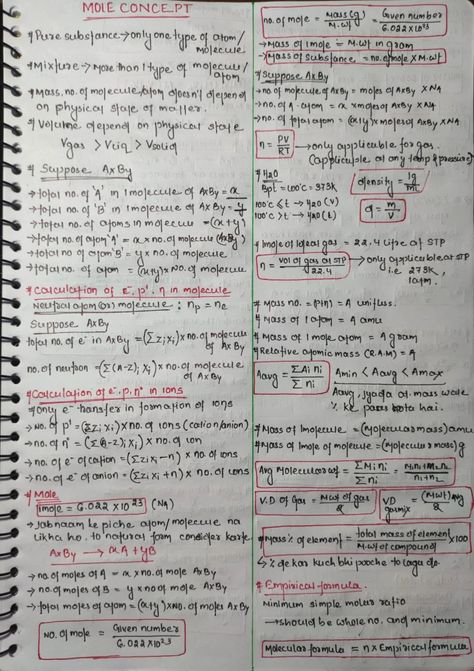 MOLE CONCEPT
* Pure substance → only one type of atom/
molecule
* Mixture → More than 1 type of molecule/
atom
* Mass, no. of molecule/atom doesn't depend
on physical state of matter.
* Volume depend on physical state
Vgas > Vliq > Vsolid
* Suppose AxBy
→ total no. of 'A' in 1 molecule of AxBy = x
→ total no. of 'B' in 1 molecule of AxBy = y
→ total no. of atoms in molecule = (x+y)
→ total no. of atom 'A' = x × no. of molecule (AxBy)
→ total no. of atom 'B' = y × no. of molecule
→ total no. of atom = (x+y) × no. of molecule
* Calculation of e⁻, p⁺, n in molecule
Neutral atom (or) molecule : np = ne
Suppose AxBy
total no. of e⁻ in AxBy = (Σ zi xi) × no. of molecule
of AxBy
no. of neutron = (Σ (A-z)i xi) × no. of molecule
of AxBy
* Calculation of e⁻, p, n⁰ in ions
* Only e⁻ transfer in formation of ions
→ No. of p⁺ = (Σ zi xi) × no. of ions (cation/anion)
→ no. of n⁰ = (Σ (A-z)i xi) × no. of ion
→ no. of e⁻ of cation = (Σ zi xi - n) × no. of ions
→ no. of e⁻ of anion = (Σ zi xi + n) × no. of ions
* Mole
1mole = 6.022 × 10²³ (NA)
→ Jab naam ke piche atom/molecule na
likha ho. to natural form consider karte
AxBy → xA + yB
→ no. of moles of A = x × no. of mole AxBy
→ no. of moles of B = y × no of mole AxBy
→ total moles of atom = (x+y) × no. of moles AxBy
No. of mole = Given number / 6.022 × 10²³
no. of mole = Mass(g) / M.wt = Given number / 6.022 × 10²³
→ Mass of 1 mole = M.wt in gram
→ Mass of Substance = no. of mole × M.wt
* Suppose AxBy
→ no. of molecule of AxBy = moles of AxBy × NA
→ no. of A-atom = x × moles of AxBy × NA
→ no. of total atom = (x+y) × moles of AxBy × NA
n = PV / RT → only applicable for gas.
(applicable at any temp & pressure)
* H2O
Bpt = 100°C = 373K
100°C < t → H2O (v)
100°C > t → H2O (l)
density = 1g / ml
d = m / v
* 1mole of Ideal gas = 22.4 litre at STP
n = Vol of gas at STP / 22.4 → only applicable at STP
i.e. 273K,
1atm.
* Mass no. = (p+n) = A unitless.
* Mass of 1 atom = A amu
* Mass of 1 mole atom = A gram
* Relative atomic mass (R.A.M) = A
Aavg = ΣAi ni / Σ ni Amin < Aavg < Amax
Aavg, jyada at. mass wale
% ke pass hota hai.
* Mass of 1 molecule = (Molecular mass) amu
* Mass of 1 mole of molecule = (Molecular mass) g
Avg Molecular wt = ΣMi ni / Σ ni = M1n1 + M2n2 / n1 + n2
V.D of Gas = M.wt of gas / 2 VD gas mix = (M.wt) Avg / 2
* Mass % of element = total mass of element / M.wt of compound × 100
↳ % de kar kuch bhi pooche to laga do
* Empirical formula
Minimum simple molar ratio
→ should be whole no. and minimum.
Molecular formula = n × Empirical formula